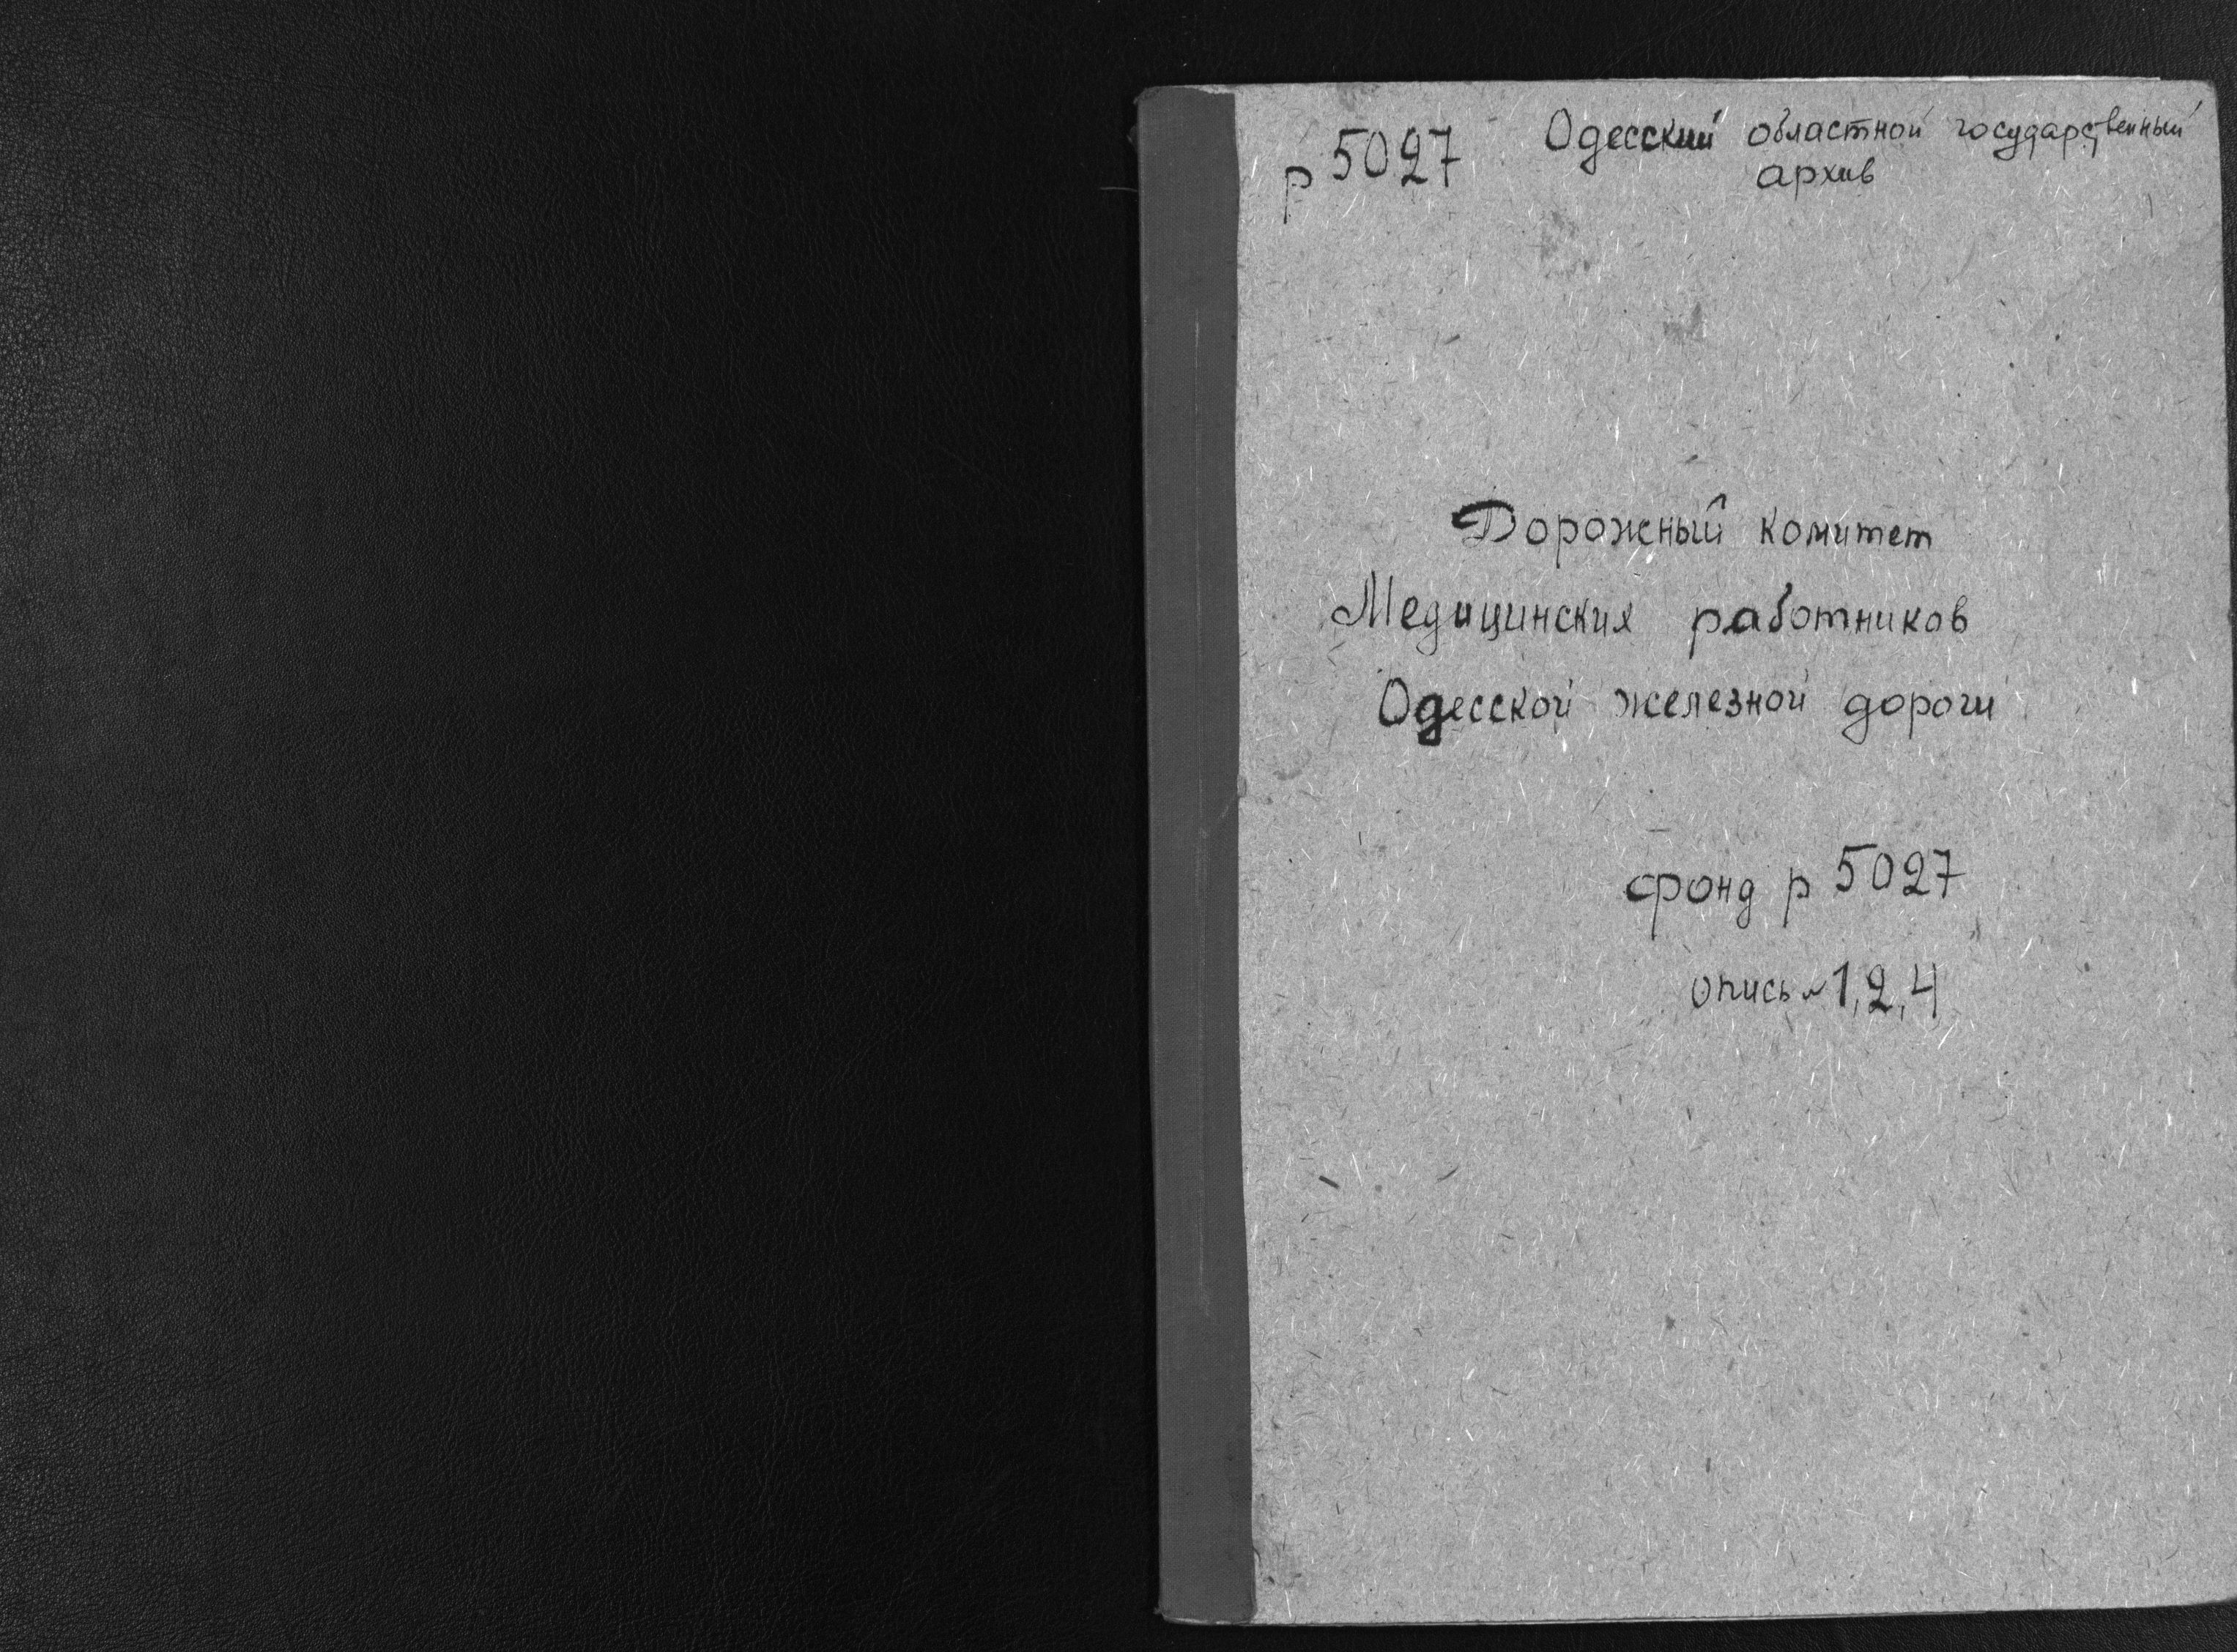 р 5027
Одесский областной государственный
архив
Дорожный комитет
Медицинских работников
Одесской железной дороги
фонд р 5027
опись № 1, 2, 4